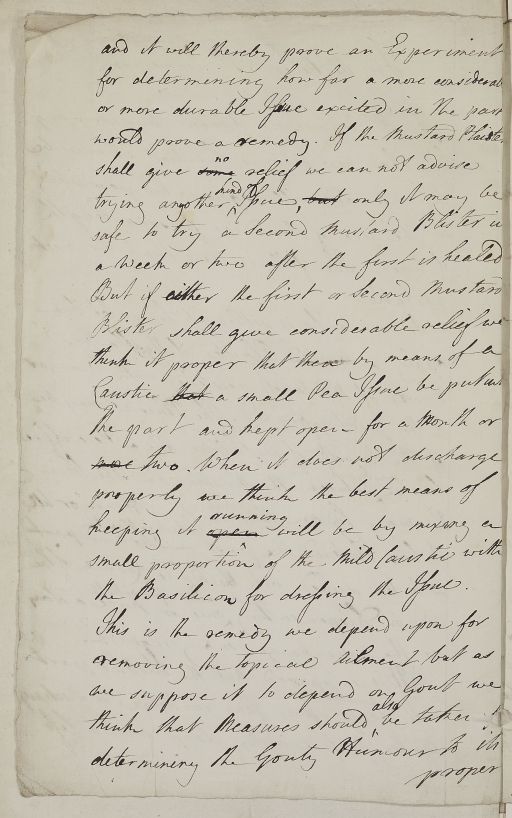 and it will thereby prove an Experiment
for determining how far a more considerab
or more durable Issue excited in the part
would prove a remedy. If the Mustard Plaister
shall give some no relief we can not advise
trying another kind of Issue, but only it may be
safe to try a Second Mustard Blister in
a Week or two after the first is healed
But if either the first or Second Mustard
Blister shall give considerable relief we
think it proper that then by means of a
Caustic that a small Pea Issue be put in
the part and kept open for a Month or
more two. When it does not discharge
properly we think the best means of
keeping it open running will be by mixing a
small proportion of the Mild Caustic with
the Basilicon for dressing the Issue.
This is the remedy we depend upon for
removing the topical Ailment but as
we suppose it to depend on Gout we
think that Measures should also be taken
determining the Gouty Humour to its
proper